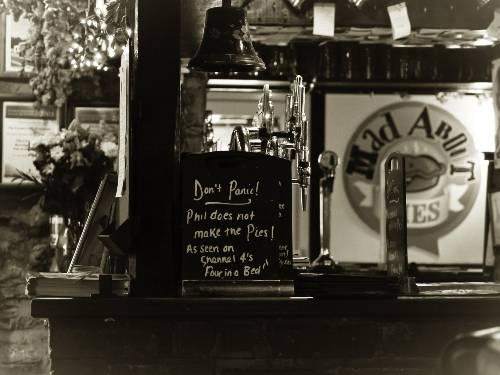 Don't Panic!
Phil does not
make the Pies!
As seen on
Channel 4's
Four in a Bed"
Mad About
PIES